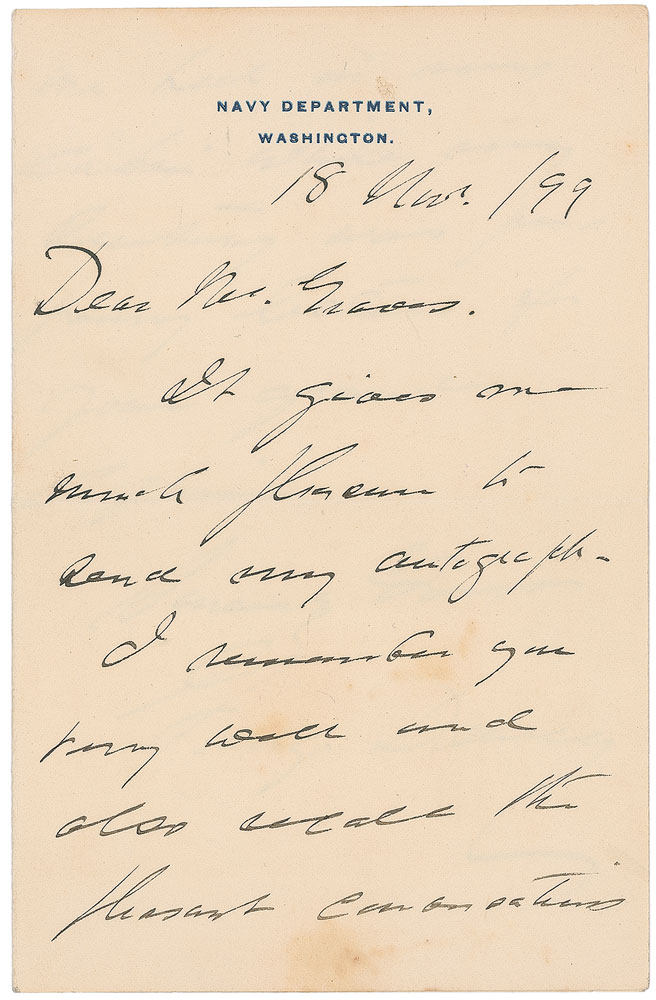 NAVY DEPARTMENT,
WASHINGTON.
18 Nov. /99
Dear Mr. Graves.
It gives me
much pleasure to
send my autograph.
I remember you
very well and
also recall the
pleasant conversations